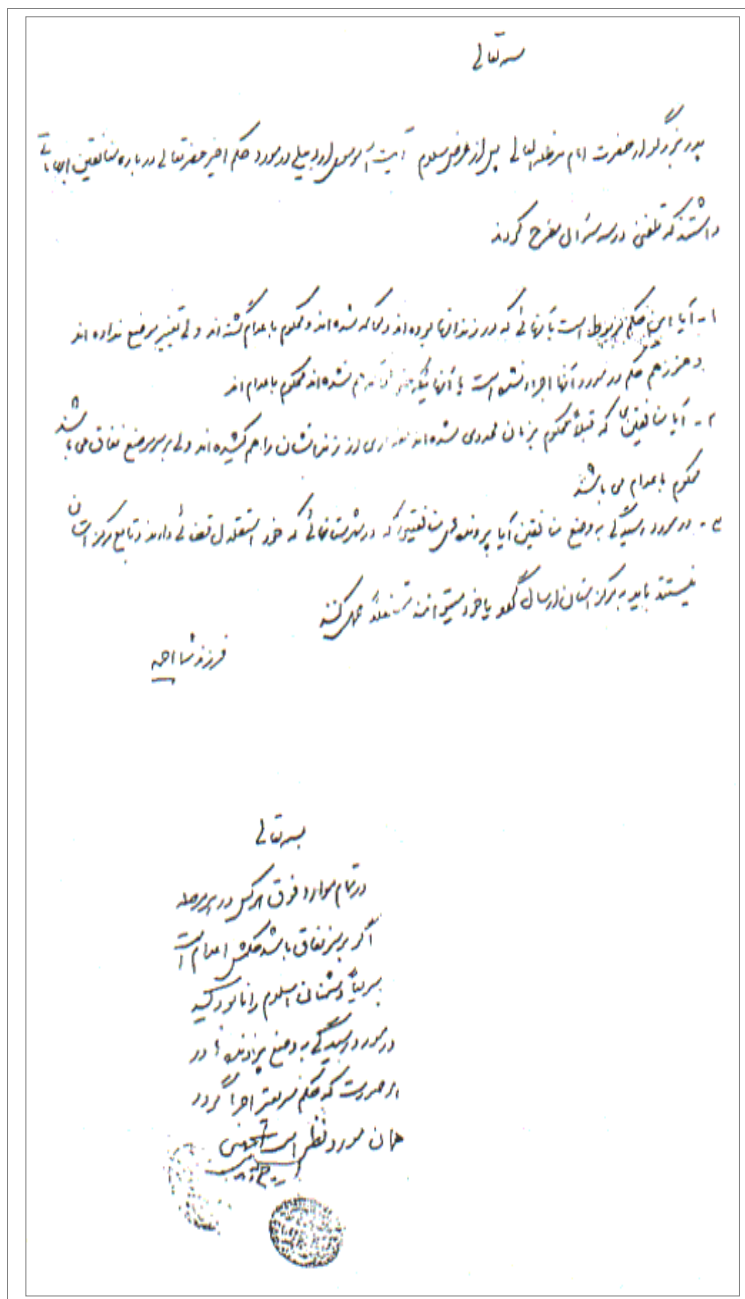 بسمه تعالی
پدر بزرگوار حضرت امام مدظله العالی پس از عرض سلام آیت‌الله موسوی اردبیلی در مورد حکم اخیر حضرتعالی درباره منافقین ابهاماتی
داشتند که تلفنی در سه سئوال مطرح کردند
۱- آیا این حکم مربوط است به آنهائی که در زندانها بوده‌اند و محاکمه شده‌اند و محکوم به اعدام گشته‌اند ولی تغییر موضع نداده‌اند
و هنوز هم حکم در مورد آنها اجراء نشده است یا آنهائیکه حتی محاکمه هم نشده‌اند محکوم به اعدامند
۲- آیا منافقینی که قبلاً محکوم بزمان محدودی شده‌اند مقداری از زندانشان را هم کشیده‌اند ولی بر سر موضع نفاق می‌باشند
محکوم به اعدام می‌باشند
۳- در مورد رسیدگی به وضع منافقین آیا پرونده‌های منافقینی که در شهرستانهائی که خود استقلال قضائی دارند و تابع مرکز استان
نیستند باید به مرکز استان ارسال گردد یا خود میتوانند مستقلاً عمل کنند
فرزند شما احمد
بسمه تعالی
در تمام موارد فوق هر کس در هر مرحله
اگر بر سر نفاق باشد حکمش اعدام است
سریعاً دشمنان اسلام را نابود کنید
در مورد رسیدگی به وضع پرونده‌ها در
هر صورت که حکم سریعتر اجرا گردد
همان مورد نظر است
روح الله الموسوی الخمینی